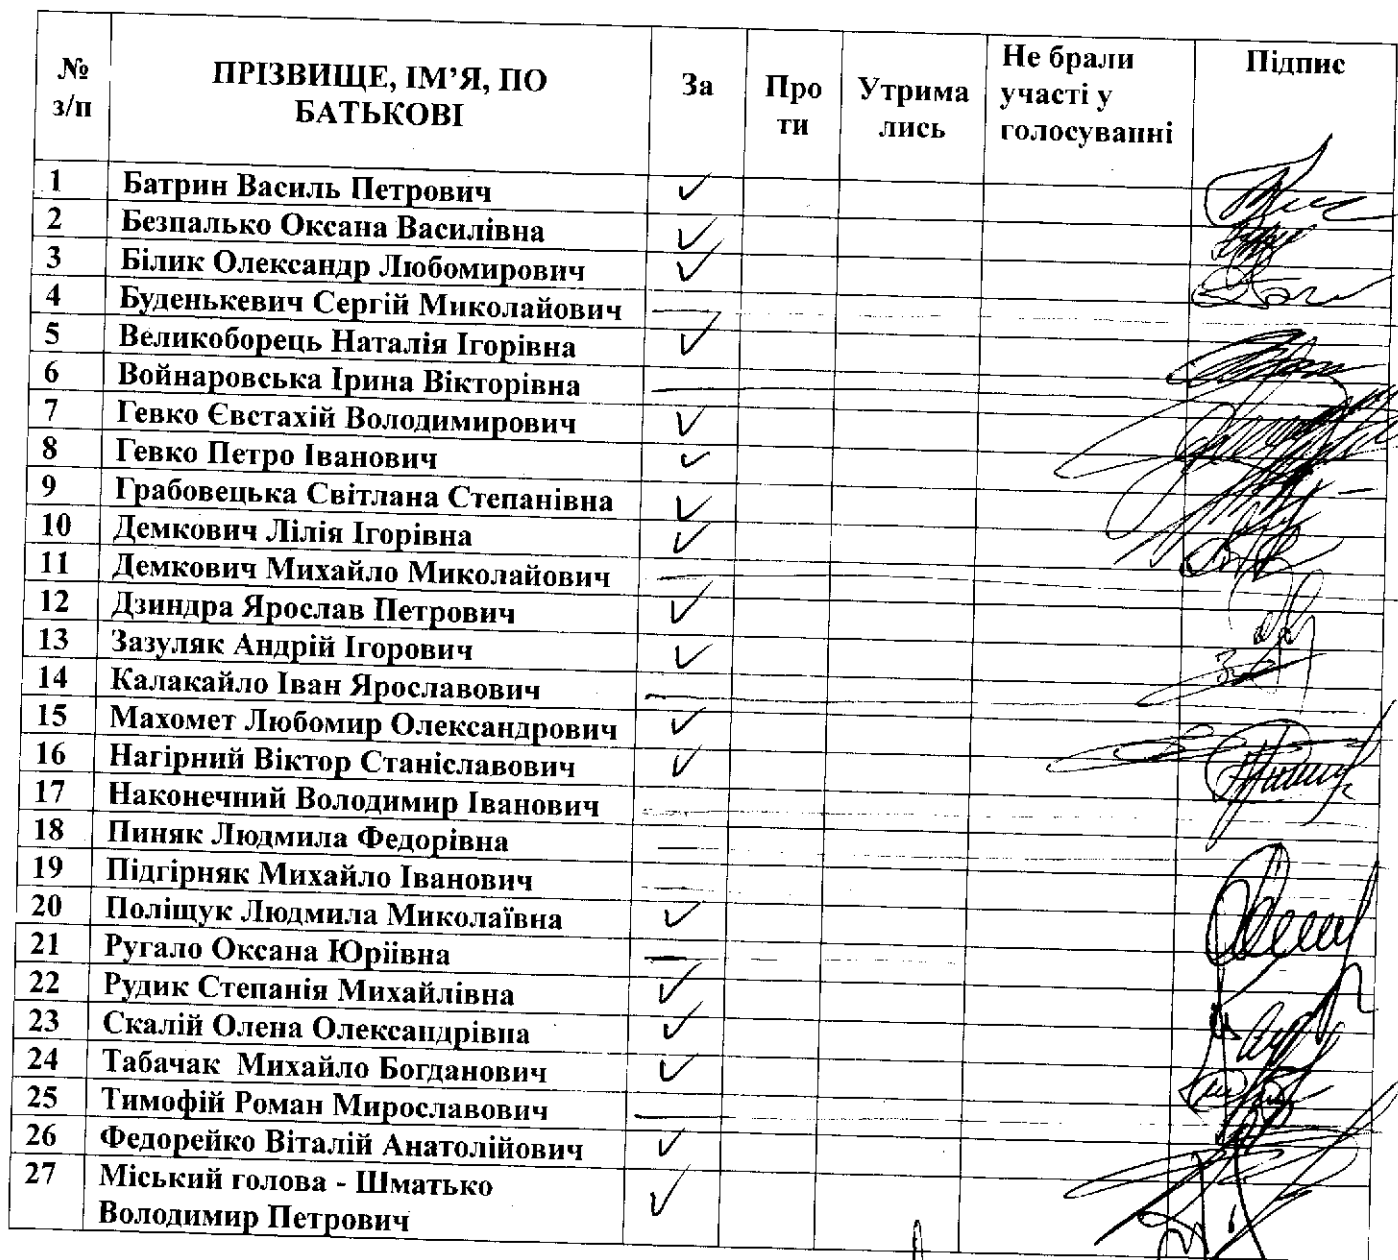 № з/п ПРІЗВИЩЕ, ІМ’Я, ПО БАТЬКОВІ За Про ти Утрима лись Не брали участі у голосуванні Підпис
1 Батрин Василь Петрович ✓
2 Безпалько Оксана Василівна ✓
3 Білик Олександр Любомирович ✓
4 Буденькевич Сергій Миколайович —
5 Великоборець Наталія Ігорівна ✓
6 Войнаровська Ірина Вікторівна —
7 Гевко Євстахій Володимирович ✓
8 Гевко Петро Іванович ✓
9 Грабовецька Світлана Степанівна ✓
10 Демкович Лілія Ігорівна ✓
11 Демкович Михайло Миколайович —
12 Дзиндра Ярослав Петрович ✓
13 Зазуляк Андрій Ігорович ✓
14 Калакайло Іван Ярославович —
15 Махомет Любомир Олександрович ✓
16 Нагірний Віктор Станіславович ✓
17 Наконечний Володимир Іванович —
18 Пиняк Людмила Федорівна —
19 Підгірняк Михайло Іванович —
20 Поліщук Людмила Миколаївна ✓
21 Ругало Оксана Юріївна —
22 Рудик Степанія Михайлівна ✓
23 Скалій Олена Олександрівна ✓
24 Табачак Михайло Богданович ✓
25 Тимофій Роман Мирославович —
26 Федорейко Віталій Анатолійович ✓
27 Міський голова - Шматько
Володимир Петрович ✓